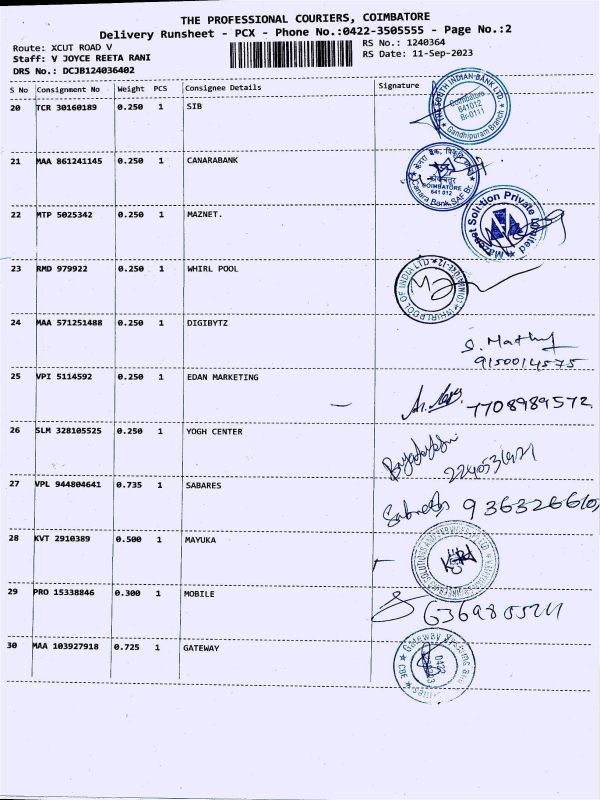 THE PROFESSIONAL COURIERS, COIMBATORE
Delivery Runsheet - PCX - Phone No.:0422-3505555 - Page No.:2
Route: XCUT ROAD V RS No.: 1240364
Staff: V JOYCE REETA RANI RS Date: 11-Sep-2023
DRS No.: DCJB124036402
S No Consignment No Weight PCS Consignee Details Signature
20 TCR 30160189 0.250 1 SIB
THE SOUTH INDIAN BANK LTD.
Coimbatore
641012
Br-0111
Gandhipuram Branch
21 MAA 861241145 0.250 1 CANARABANK
COIMBATORE
641 012
Canara Bank
22 MTP 5025342 0.250 1 MAZNET.
Solution Private
23 RMD 979922 0.250 1 WHIRL POOL
WHIRLPOOL OF INDIA LTD
24 MAA 571251488 0.250 1 DIGIBYTZ
9150014575
25 VPI 5114592 0.250 1 EDAN MARKETING
7708989572
26 SLM 328105525 0.250 1 YOGH CENTER
27 VPL 944804641 0.735 1 SABARES
28 KVT 2910389 0.500 1 MAYUKA
29 PRO 15338846 0.300 1 MOBILE
30 MAA 103927918 0.725 1 GATEWAY
Gateway Systems
CBE
0422